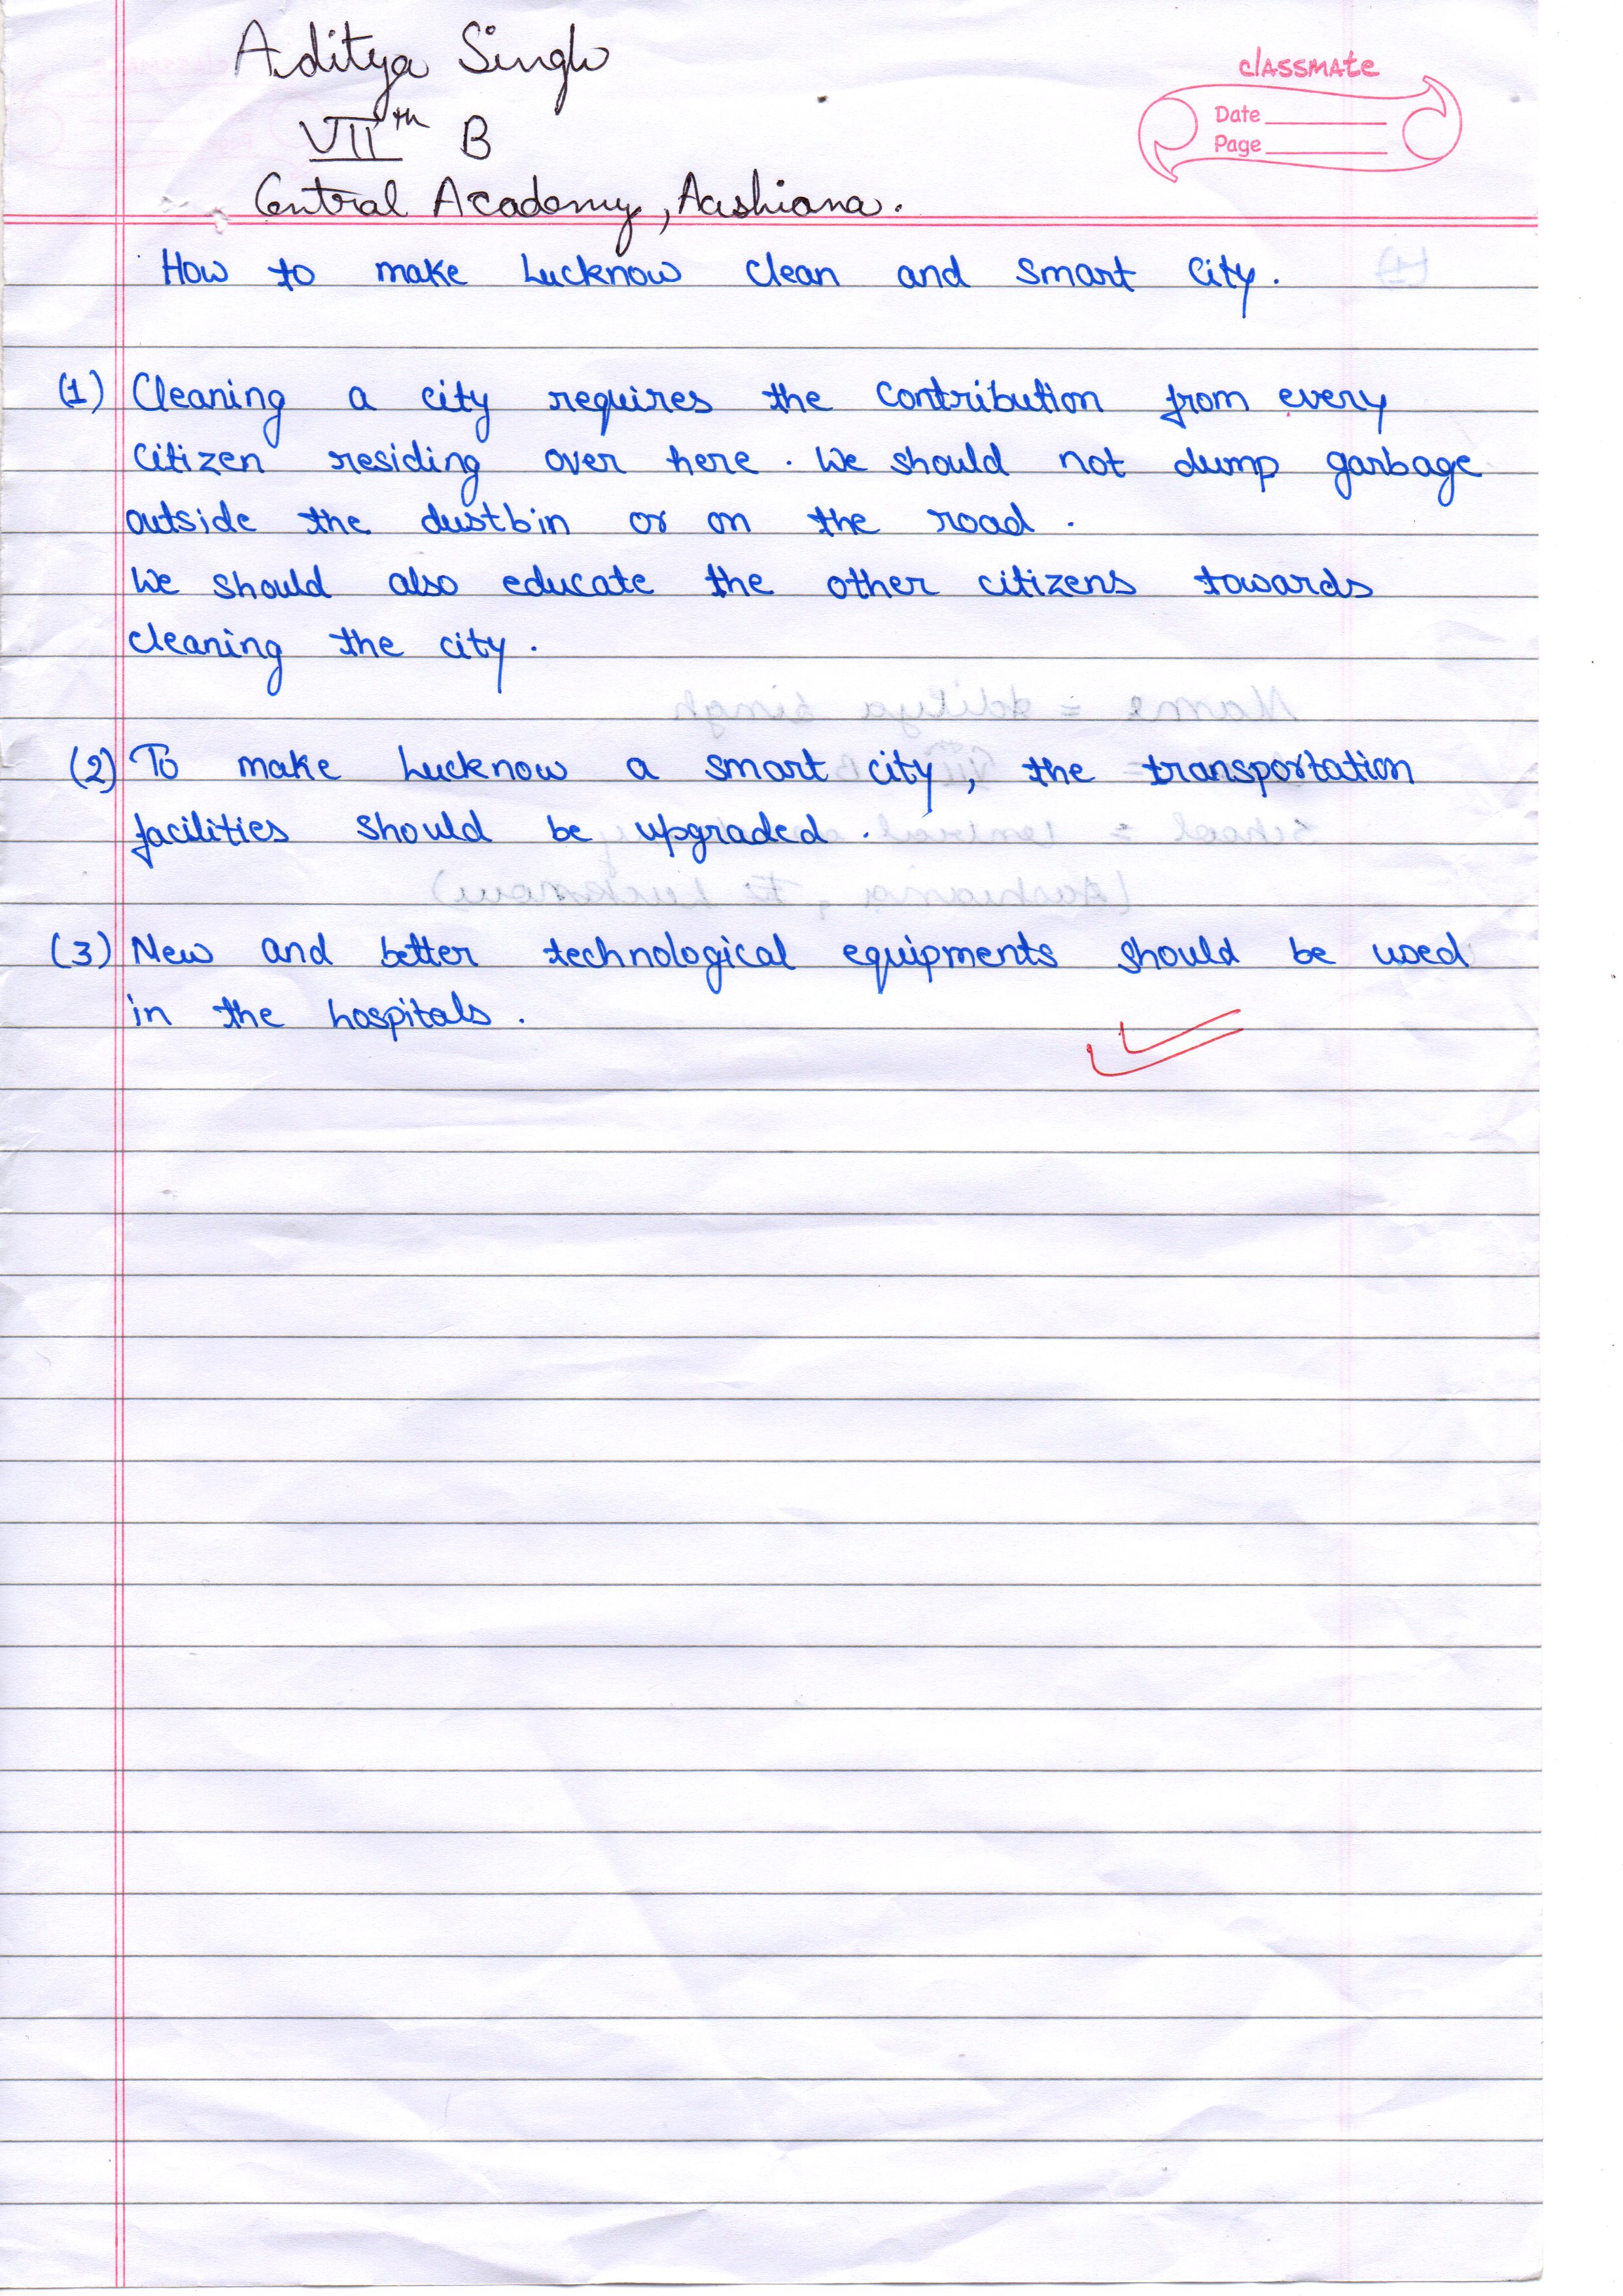 Aditya Singh
VIIth B
Central Academy, Aashiana.
classmate
Date
Page
How to make Lucknow clean and smart city.
(1) Cleaning a city requires the contribution from every
citizen residing over here. We should not dump garbage
outside the dustbin or on the road.
We should also educate the other citizens towards
cleaning the city.
(2) To make Lucknow a smart city, the transportation
facilities should be upgraded.
(3) New and better technological equipments should be used
in the hospitals.